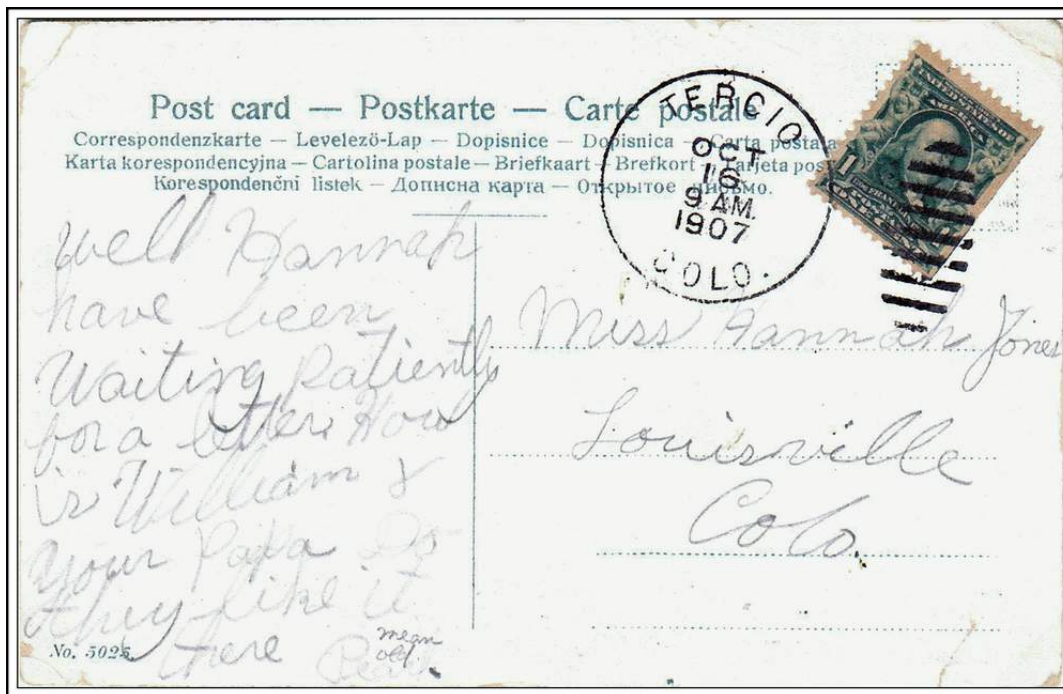 Post card — Postkarte — Carte postale
Correspondenzkarte — Levelező-Lap — Dopisnice — Dopisnica — Carta postala
Karta korespondencyjna — Cartolina postale — Briefkaart — Brefkort — Tarjeta pos
Korespondenční listek — Дописна карта — Открытое письмо.
TERCIO
OCT
16
9 AM.
1907
COLO.
1
Well Hannah
have been
Waiting Patiently
for a letter. How
is William &
your Papa Do
they like it
there
mean
old
No. 5025
Miss Hannah Jones
Louisville
Colo.